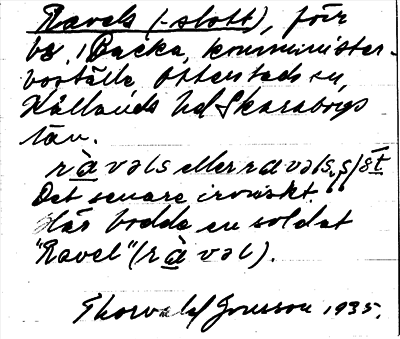 Ravels (-slott), förr
bs. i Backa, kommunister-
boställe Otterstads sn,
Kållands hd Skaraborgs
län.
ràvəls eller ravəls,s/ŏt
Det senare ironiskt.
Här bodde en soldat
"Ravel" (ràvəl).
Thorvald Jonsson 1935.